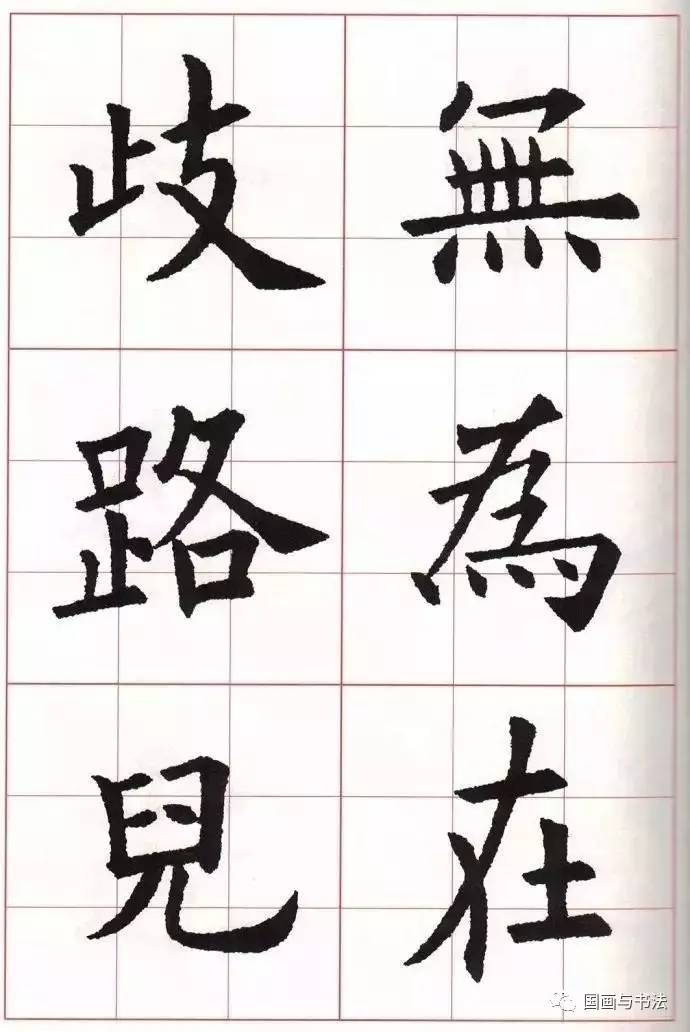 無為在
歧路兒
国画与书法